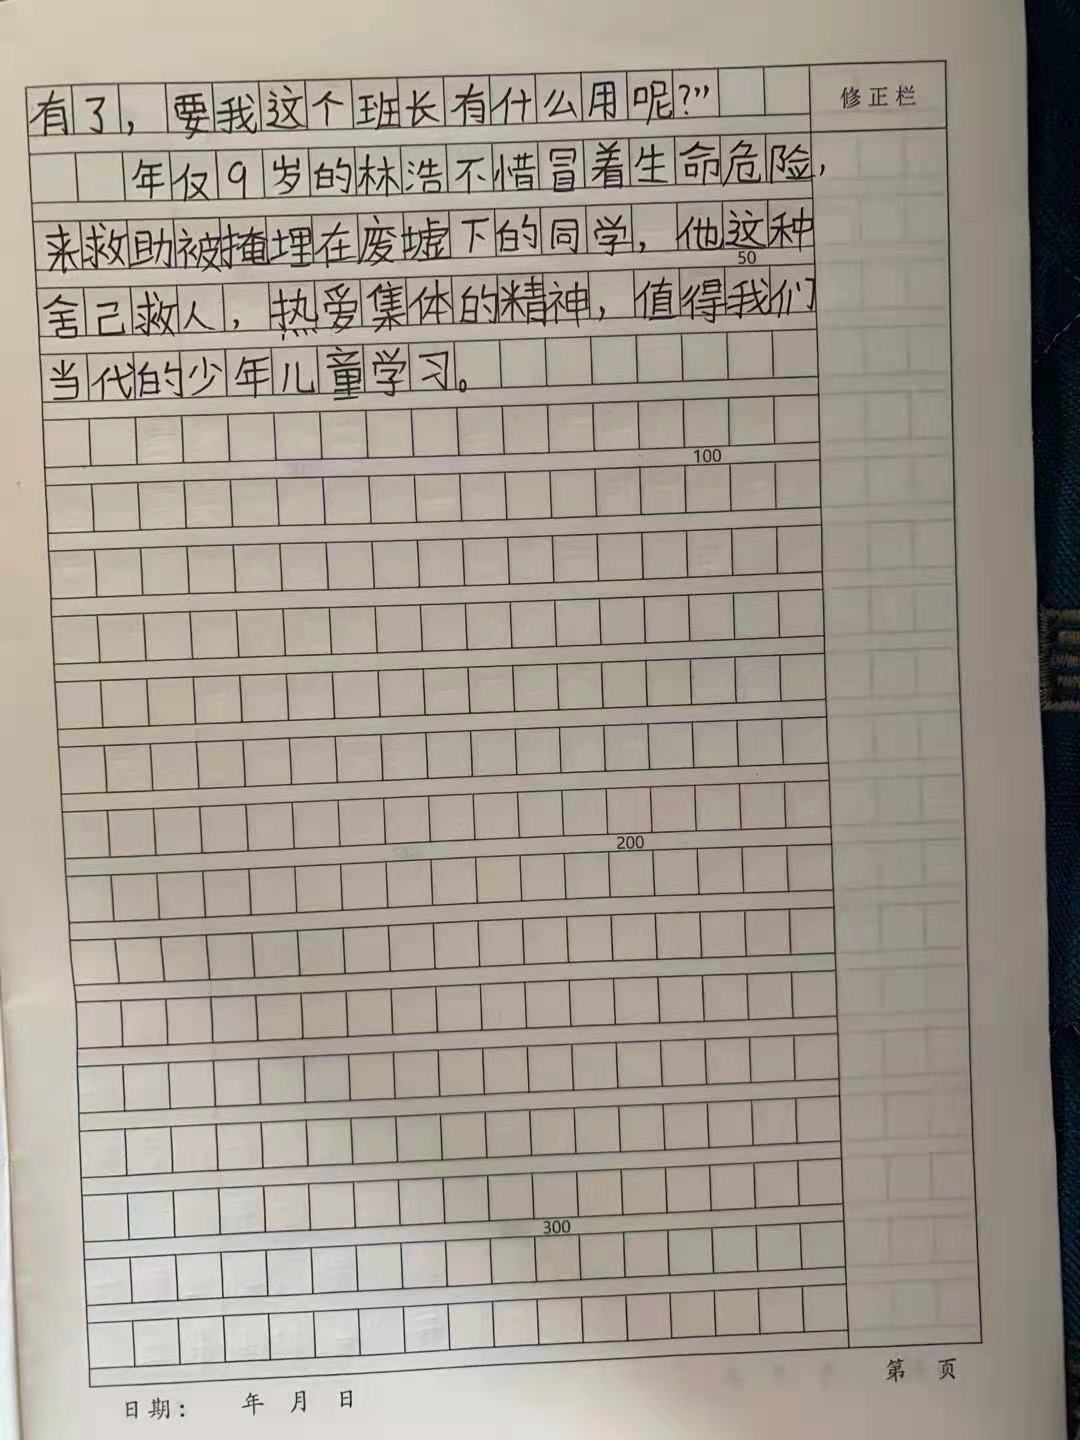 有了，要我这个班长有什么用呢？”
修正栏
年仅9岁的林浩不惜冒着生命危险，
来救助被掩埋在废墟下的同学，他这种
50
舍己救人，热爱集体的精神，值得我们
当代的少年儿童学习。
100
200
300
第 页
日期： 年 月 日